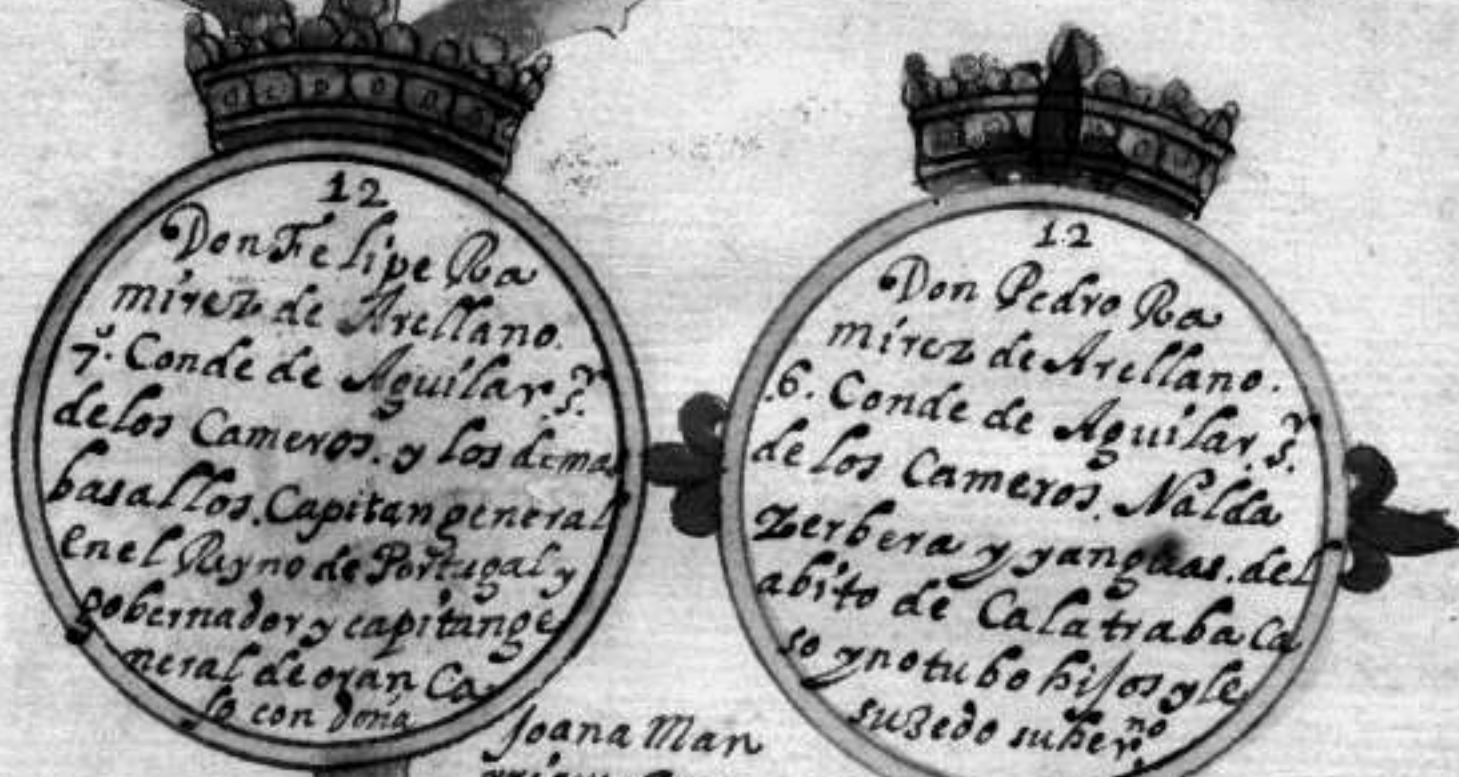 12
Don Felipe Ra
mirez de Arellano.
7º. Conde de Aguilar, sr.
delos Cameros. y los demas
basallos. Capitan general
en el Reyno de Portugal y
gobernador y capitan ge
neral de oran Ca
so con doña
Joana Man
12
Don Pedro Ra
mirez de Arellano.
.6. Conde de Aguilar. sr.
de los Cameros. Nalda
Zerbera y yanguas. del
abito de Calatraba Ca
so y no tubo hijos y le
suzedo su herno.